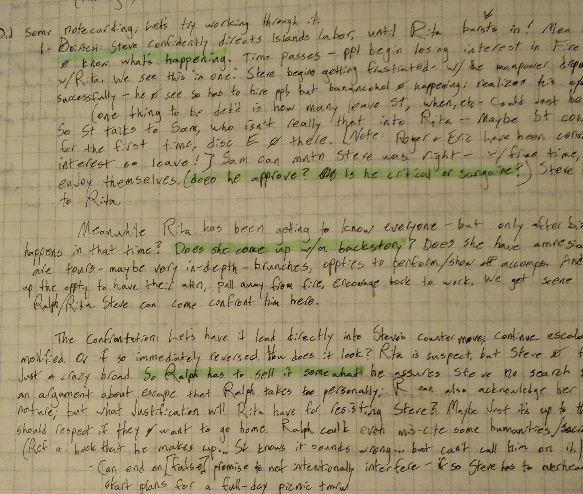 Did some notecarding; Let's try working through it
1- BEACH: Steve confidently directs Islands labor, until Rita bursts in! Men
Ø know what's happening. Time passes - ppl begin losing interest in Fire
w/Rita. We see this in one: Steve begins getting frustrated - w/ the manpower
successfully - he Ø see so has to hire ppl, but Ø happening; realizes this
(one thing to be det'd is how many leave St, when, etc - Could
So St talks to Sam, who isn't really that into Rita - Maybe St
for the first time, disc E Ø there. [Note: Roger + Eric have been
interest so leave!] Sam can mntn Steve was right - w/ free time,
enjoy themselves. (does he approve? Is he critical or sanguine?) Steve
to Rita.
Meanwhile Rita has been getting to know everyone - but only after
happens in that time? Does she come up w/a backstory? Does she have amnesia
are tours - maybe very in-depth - brunches, oppties to perform/show off accomps. And
up the oppty to have their attn, pull away from fire, encourage back to work. We get scene
Ralph/Rita. Steve can come confront him here.
The Confrontation: Let's have it lead directly into Steve's counter move; continue
modified. Or if so immediately reversed. How does it look? Rita is suspect, but Steve Ø
just a crazy broad. So Ralph has to sell it somewhat he assures Steve no search
an argument about escape that Ralph takes too personally; R can also acknowledge her
nature, but what Justification will Rita have for resisting Steve? Maybe Just it's up to
should respect if they Ø want to go home. Ralph could even mis-cite some humanities/
(Ref a book that he makes up... St knows it sounds wrong... but can't call him on it)
- Can end on [false] promise to not intentionally interfere - if so Steve has to
start plans for a full-day picnic tmrw